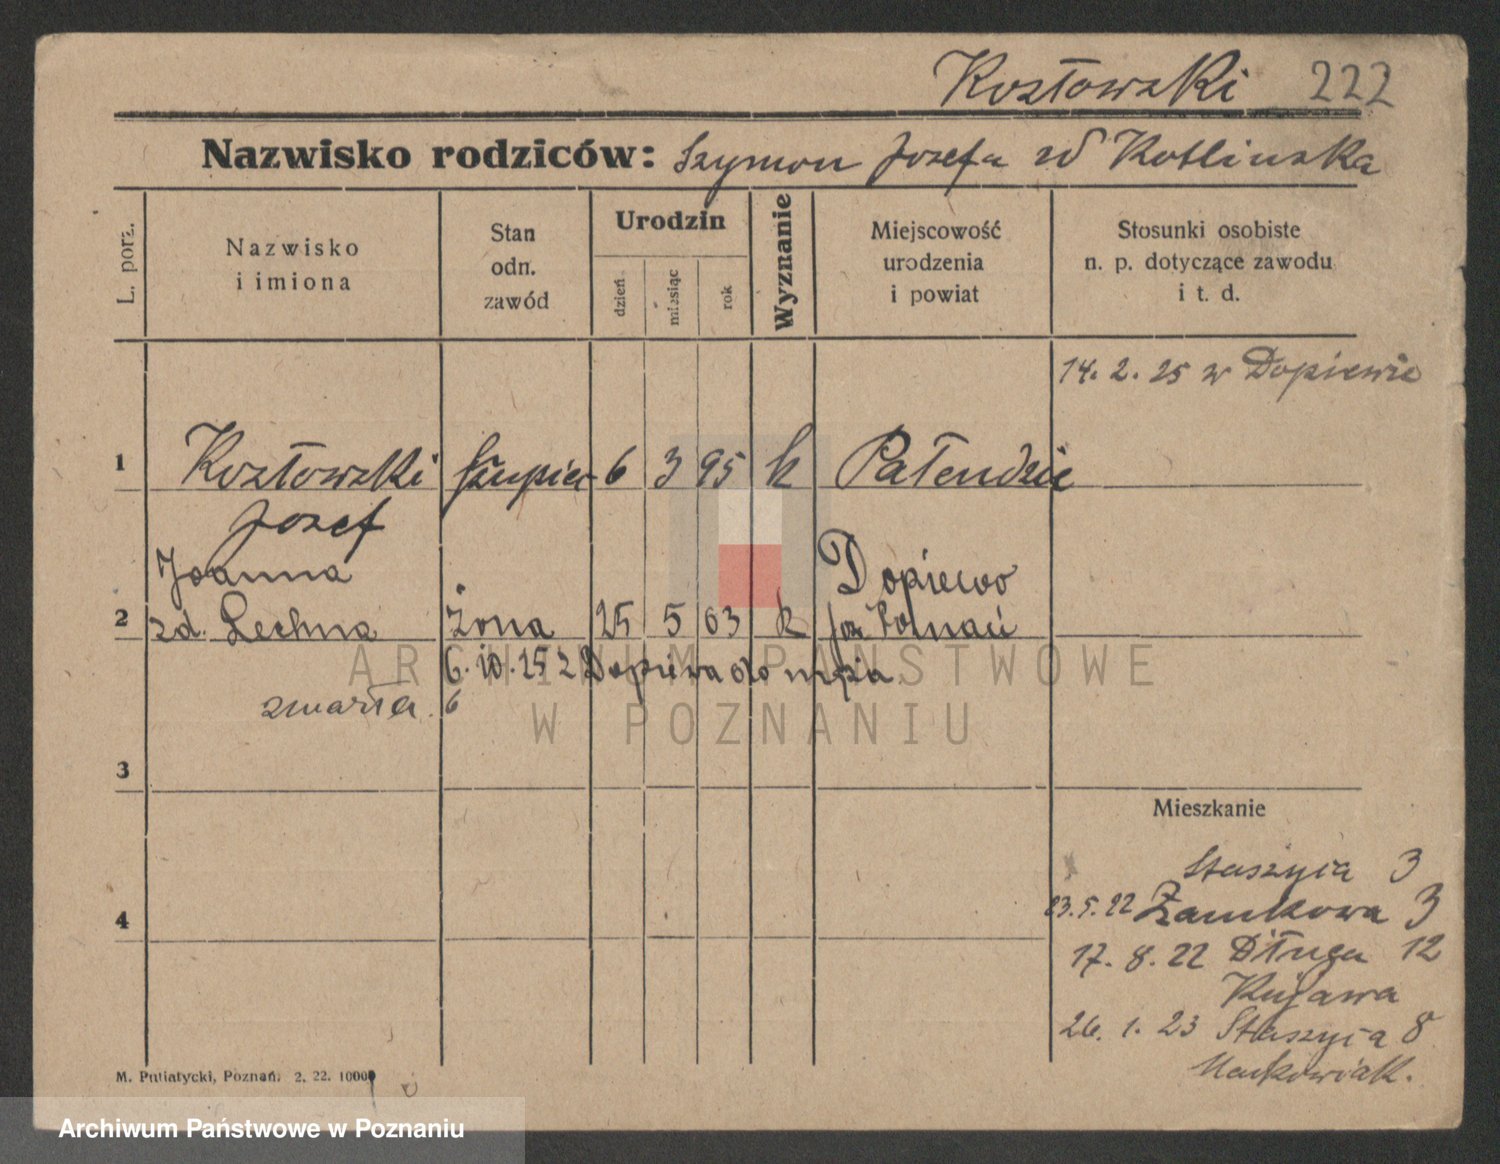 Kozłowski 222
Nazwisko rodziców: Szymon Józefa zd Kotlinska
L. porz.
Nazwisko
i imiona
Stan
odn.
zawód
Urodzin
dzień
miesiąc
rok
Wyznanie
Miejscowość
urodzenia
i powiat
Stosunki osobiste
n. p. dotyczące zawodu
i t. d.
14. 2. 25 w Dopiewie
1 Kozłowski 6 3 95 k Palendzie
Jozef
Joanna Dopiewo
2 zd. Lechna żona 25 5 03 k
6. 10. 25 z Dopiewa do męża
zmarła 6
3
Mieszkanie
Staszyca 3
23. 5. 22 Zamkowa 3
4
17. 8. 22 Długa 12
Kujawa
26. 1. 23 Staszyca 8
Maćkowiak.
M. Putiatycki, Poznań. 2. 22. 10000
ARCHIWUM PAŃSTWOWE
W POZNANIU
Archiwum Państwowe w Poznaniu